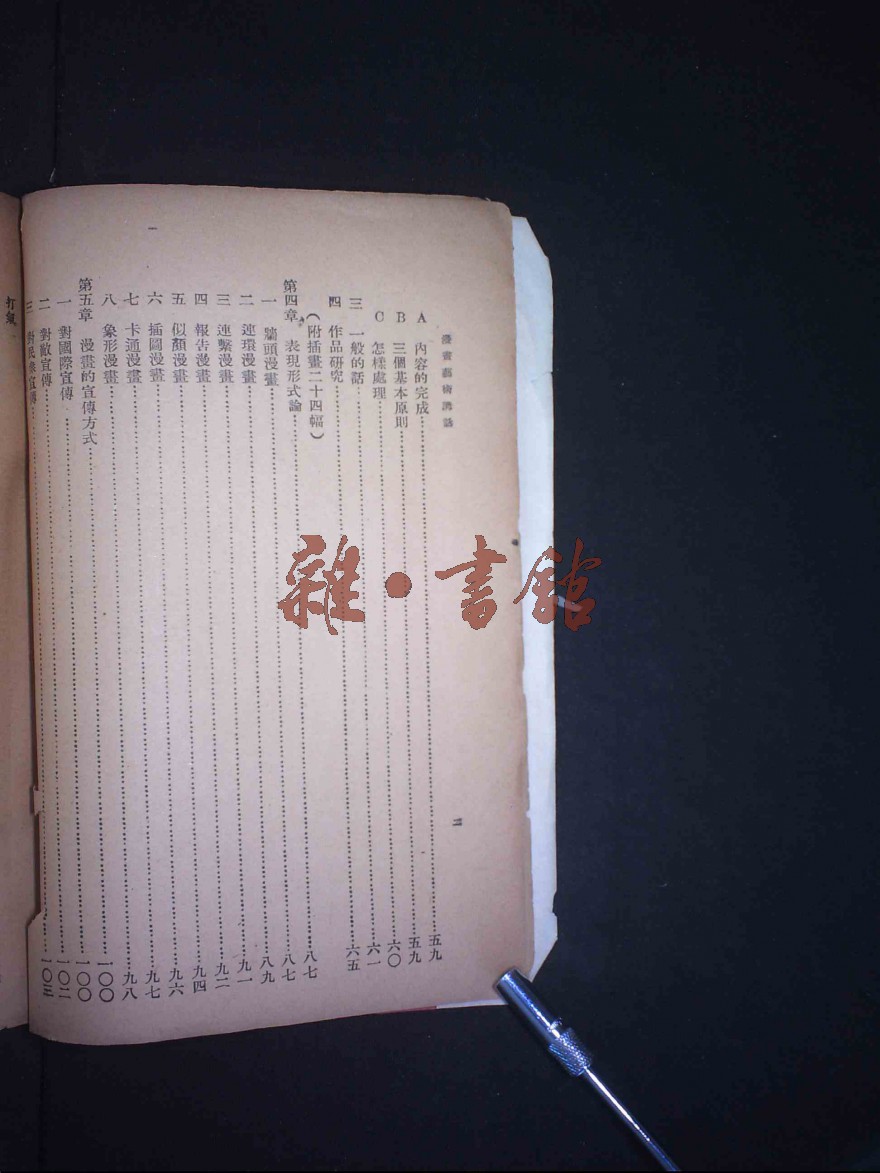 漫畫藝術講話
二
A 內容的完成……五九
B 三個基本原則……五九
C 怎樣處理……六〇
三 一般的話……六一
四 作品研究……六五
(附插畫二十四幅)
第四章 表現形式論……八七
一 牆頭漫畫……八七
二 連環漫畫……八九
三 連繫漫畫……九一
四 報告漫畫……九二
五 似顏漫畫……九四
六 插圖漫畫……九六
七 卡通漫畫……九七
八 象形漫畫……九八
第五章 漫畫的宣傳方式……一〇〇
一 對國際宣傳……一〇〇
二 對敵宣傳……一〇二
三 對民衆宣傳……一〇三
打氣
雜·書館